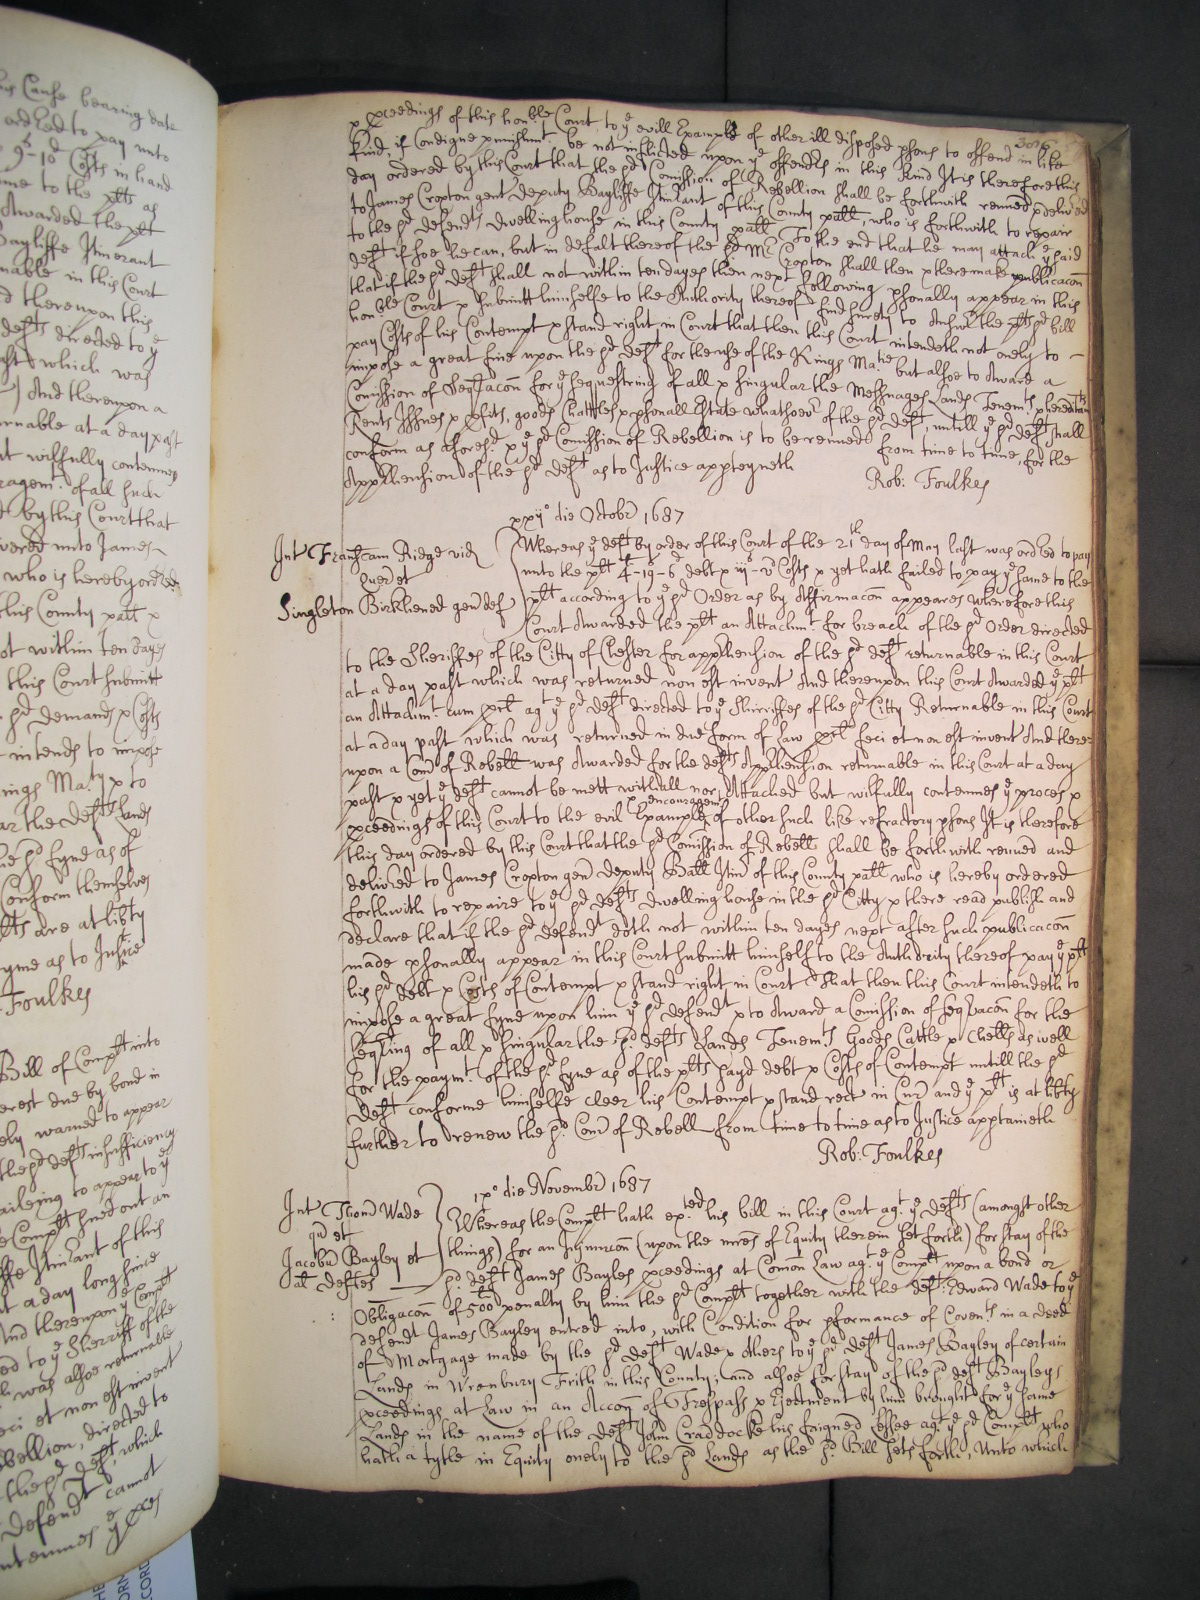 his Cause bearing date
ordred to pay unto
9s–10d Costs in hand
ame to the plts as
Awarded the plt
Bayliffe Itinerant
nable in this Court
d thereupon this
defts directed to ye
past which was
And thereupon a
urnable at a day past
ut wilfully contemnes
ragemt of all such
d by this Court that
vered unto James
who is hereby ordred
this County palt x
ot within ten dayes
this Court submitt
sd demands x Costs
intends to impose
ings Maty x to
ar the Defts Lands
he sd fyne as of
Conform themselves
lts are at libty
yme as to Justice
Foulkes
Bill of Complt into
erest due by bond in
ely warned to appear
the sd defts insufficiency
aileing to appear to ye
e Complt sued out an
ffe Itinlant of this
at a day long since
And thereupon ye Complt
ed to ye Sherriff of the
h was alsoe returnable
eci et non est invent
ebellion, directed to
the sd Deft, which
Defendt cannot
ntemnes ye pces
3006
x pceedings of this honble Court to ye evill Example of other ill disposed psons to offend in like
kind, if Condigne punishmt be not inflicted upon ye offendrs in this kind It is therefore this
day ordered by this Court that the sd Comission of Rebellion shall be forthwith renued x delivred
to James Croxton gent deputy Bayliffe Itinlant of this County palt, who is forthwith to repair
to the sd defendts dwelling house in this County palt To the end that he may attach ye said
deft if soe he can, but in defalt thereof the sd Mr Croxton shall then x there make publicacon
that if the sd deft shall not within ten dayes then next following psonally appear in this
honble Court x submitt himselfe to the Authority thereof find surety to Answr the plts sd bill
pay Costs of his Contempt x stand right in Court that then this Court intendeth not onely to –
impose a great fine upon the sd deft for the use of the Kings Matie but alsoe to Award a
Comission of Seqstacon for ye sequestring of all x singular the Messuages Lands Tenemts x hereditamts
Rents Issues x pfits, goods Chattles x psonall Estate whatsoevr of the sd deft, untill ye sd deft shall
conform as aforesd x ye sd Comission of Rebellion is to be renued from time to time, for the
Apphension of the sd deft as to Justice apptayneth
Rob: Foulkes
xxijo die Octobr 1687
Int Franscam Ridge vid
Quer et
Singleton Birkhened gen def
Whereas ye deft by order of this Court of the 21th day of May last was ordred to pay
unto the plt 4–19–6 debt x iijs–vd Costs x yet hath failed to pay ye same to the
plt according to ye sd Order as by Affirmacon appeares wherefore this
Court Awarded the plt an Attachmt for breach of the sd Order directed
to the Sheriffes of the Citty of Chester for apphension of the sd deft returnable in this Court
at a day past which was returned non est invent And thereupon this Court Awarded ye plt
an Attachmt cum pcl agt ye sd deft directed to ye Sherriffes of the sd Citty Returnable in this Court
at a day past which was returned in due form of law pcl feci et non est invent And there
upon a Comn of Rebell was Awarded for the defts Apphension returnable in this Court at a day
past x yet ye deft cannot be mett withall nor Attached but wilfully contemnes ye proces x
pceedings of this Court to the evil Example x encouragemt of other such like refractory psons It is therefore
this day ordered by this Court that the sd Comission of Rebell shall be forthwith renued and
delivred to James Croxton gen deputy Baill Itin of this County palt who is hereby ordered
forthwith to repaire to ye sd defts dwelling house in the sd Citty x there read publish and
declare that if the sd defendt doth not within ten dayes next after such publicacon
made psonally appear in this Court submitt himself to the Authority thereof pay ye plt
his sd debt x Costs of Contempt x stand right in Court That then this Court intendeth to
impose a great fyne upon him ye sd defendt x to Award a Comission of Seqstracon for the
Seqstring of all x singular the sd defts Lands Tenemts Goods Cattle x Chells as well
for the paymt of the sd fyne as of the plts sayd debt x Costs of Contempt untill the sd
deft conforme himselfe cleer his Contempt x stand rect in Cur and ye plt is at libty
further to renew the sd Comn of Rebell from time to time as to Justice apptaineth
Rob: Foulkes
ixo die Novembr 1687
Int Thom Wade
qu et
Jacobu Bayley et
al deftes
Whereas the Complt hath exted his bill in this Court agt ye defts (amongst other
things) for an Injuncon (upon the mres of Equity therein set forth) for stay of the
sd deft James Bayles pceedings at Comon Law agt ye Complt upon a bond or
Obligacon of 500li penalty by him the sd Complt together with the deft Edward Wade to ye
defendt James Bayley entred into, with Condition for pformance of Covents in a deed
of Mortgage made by the sd deft Wade x others to ye sd deft James Bayley of certain
Lands in Wrenbury Frith in this County, and alsoe for stay of the sd deft Bayleys
pceedings at Law in an Accon of Trespass x Ejectment by him brought for ye same
Lands in the name of the deft John Craddocke his feigned Lessee agt ye sd Complt who
hath a tytle in Equity onely to the sd Lands as the sd Bill sets forth, Unto which